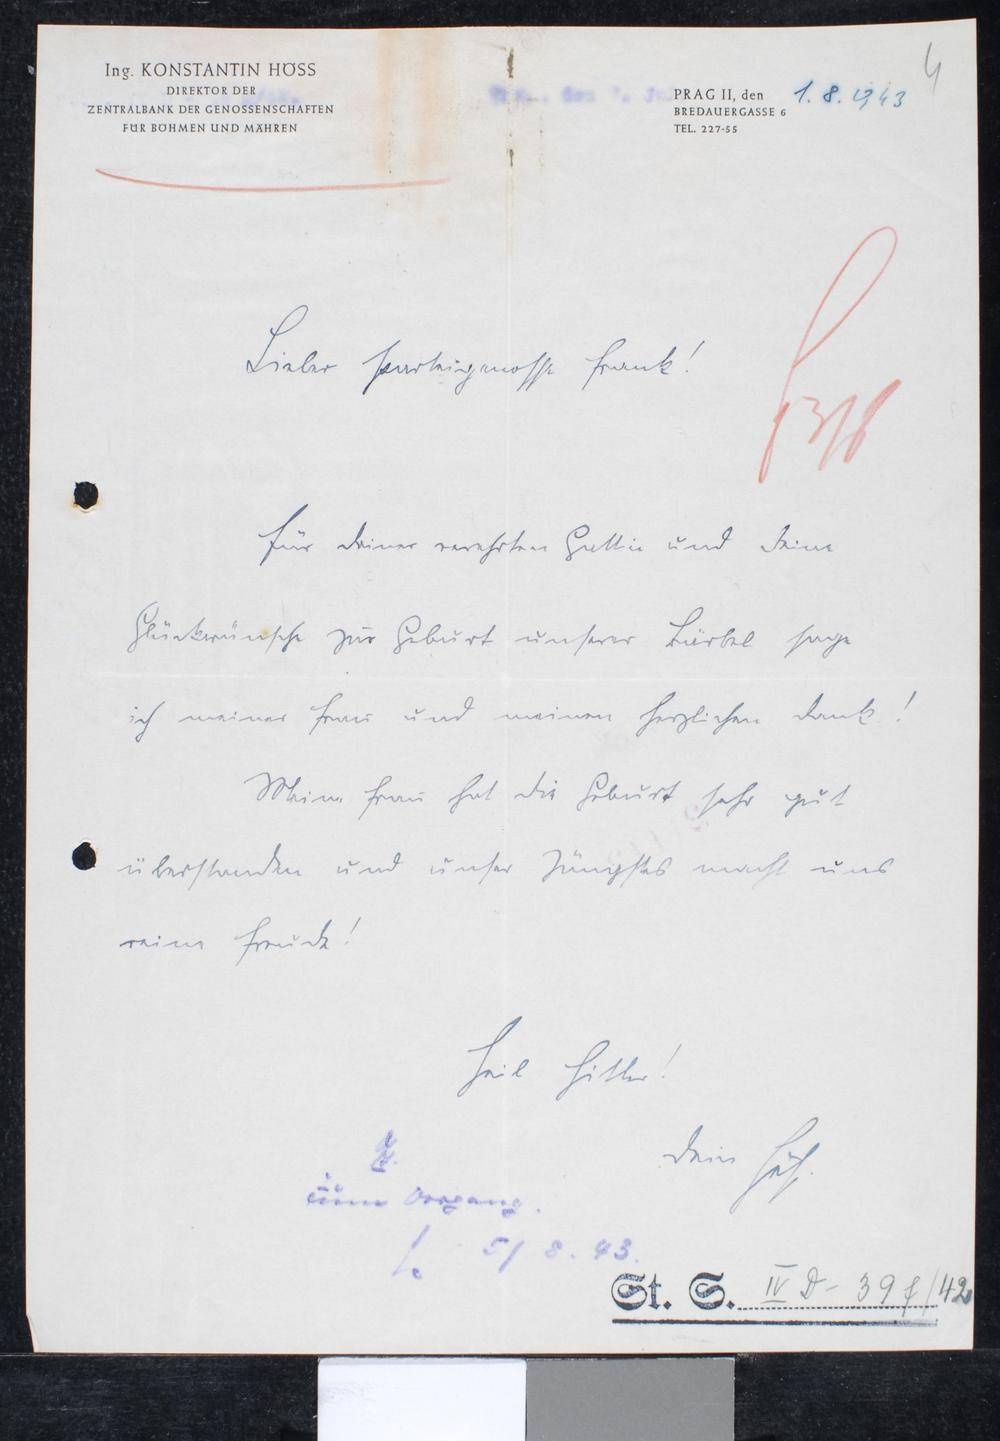 4
Ing. KONSTANTIN HÖSS
DIREKTOR DER
ZENTRALBANK DER GENOSSENSCHAFTEN
FÜR BÖHMEN UND MÄHREN
PRAG II, den 1. 8. 1943
BREDAUERGASSE 6
TEL. 227-55
Lieber Parteigenosse Frank!
Für Deiner verehrten Gattin und Deine
Glückwünsche zur Geburt unserer Bärbel sage
ich meiner Frau und meinen herzlichen Dank!
Meine Frau hat die Geburt sehr gut
überstanden und unser Jüngstes macht uns
reine Freude!
Heil Hitler!
Dein Höß.
zum Vorgang.
5/ 8. 43.
St. S. IV D - 39 /42